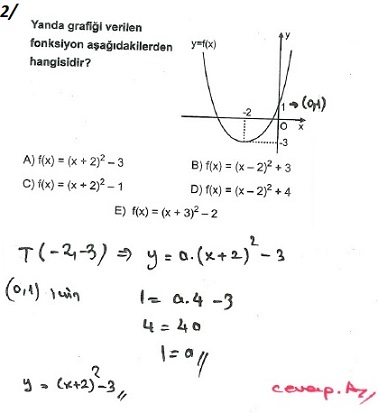 2/
Yanda grafiği verilen
fonksiyon aşağıdakilerden
hangisidir?
y=f(x)
y
1 → (0,1)
-2
O
x
-3
A) f(x) = (x + 2)² – 3
B) f(x) = (x – 2)² + 3
C) f(x) = (x + 2)² – 1
D) f(x) = (x – 2)² + 4
E) f(x) = (x + 3)² – 2
T(-2,-3) ⇒ y = a.(x+2)² - 3
(0,1) için
1 = a.4 - 3
4 = 4a
1 = a //
y = (x+2)² - 3 //
cevap. A //